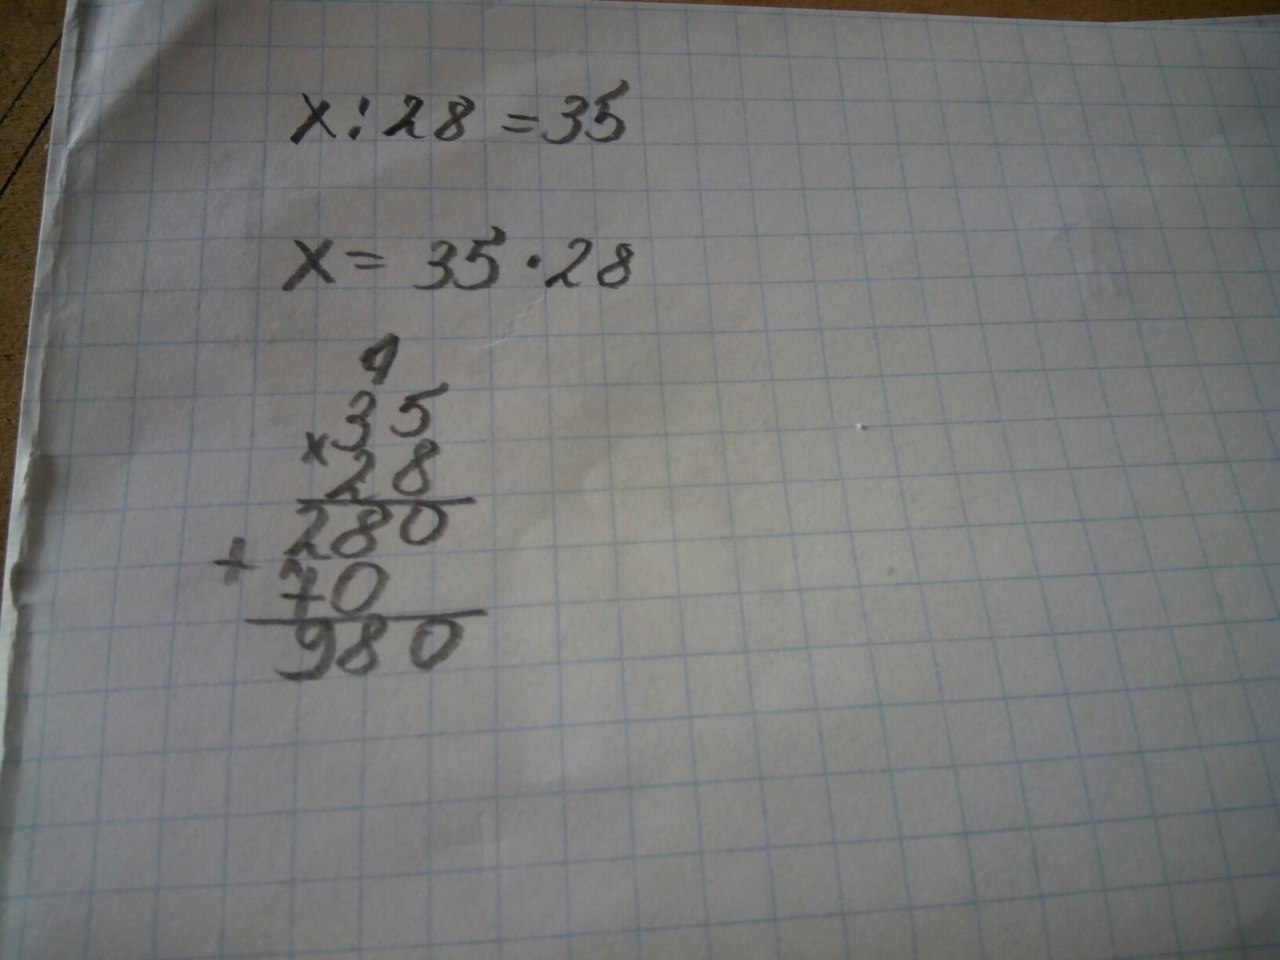 x:28=35
x=35·28
4
35
×28
280
+70
980